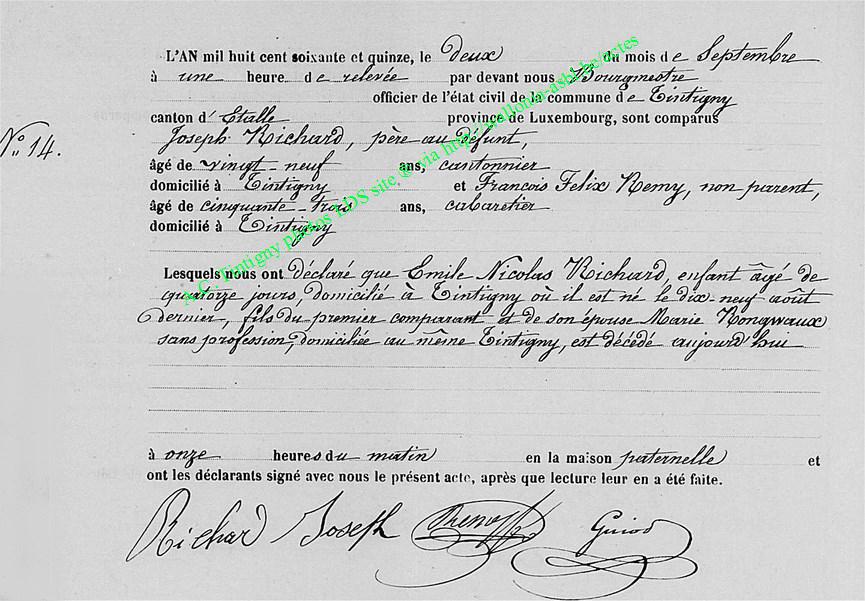 L'AN mil huit cent soixante et quinze, le deux du mois de Septembre
à une heure de relevée par devant nous Bourgmestre
officier de l'état civil de la commune de Tintigny
canton d'Etalle province de Luxembourg, sont comparus
N° 14.
Joseph Richard, père au défunt,
âgé de vingt-neuf ans, cantonnier
domicilié à Tintigny et François Felix Remy, non parent,
âgé de cinquante-trois ans, cabaretier
domicilié à Tintigny
Lesquels nous ont déclaré que Emile Nicolas Richard, enfant âgé de
quatorze jours, domicilié à Tintigny où il est né le dix-neuf août
dernier, fils du premier comparant et de son épouse Marie Rongvaux
sans profession, domiciliée au même Tintigny, est décédé aujourd'hui
à onze heures du matin en la maison paternelle et
ont les déclarants signé avec nous le présent acte, après que lecture leur en a été faite.
Richard Joseph Guiod
A.C. Tintigny photos LDS site @ via http://wallonia-asbl.be/actes